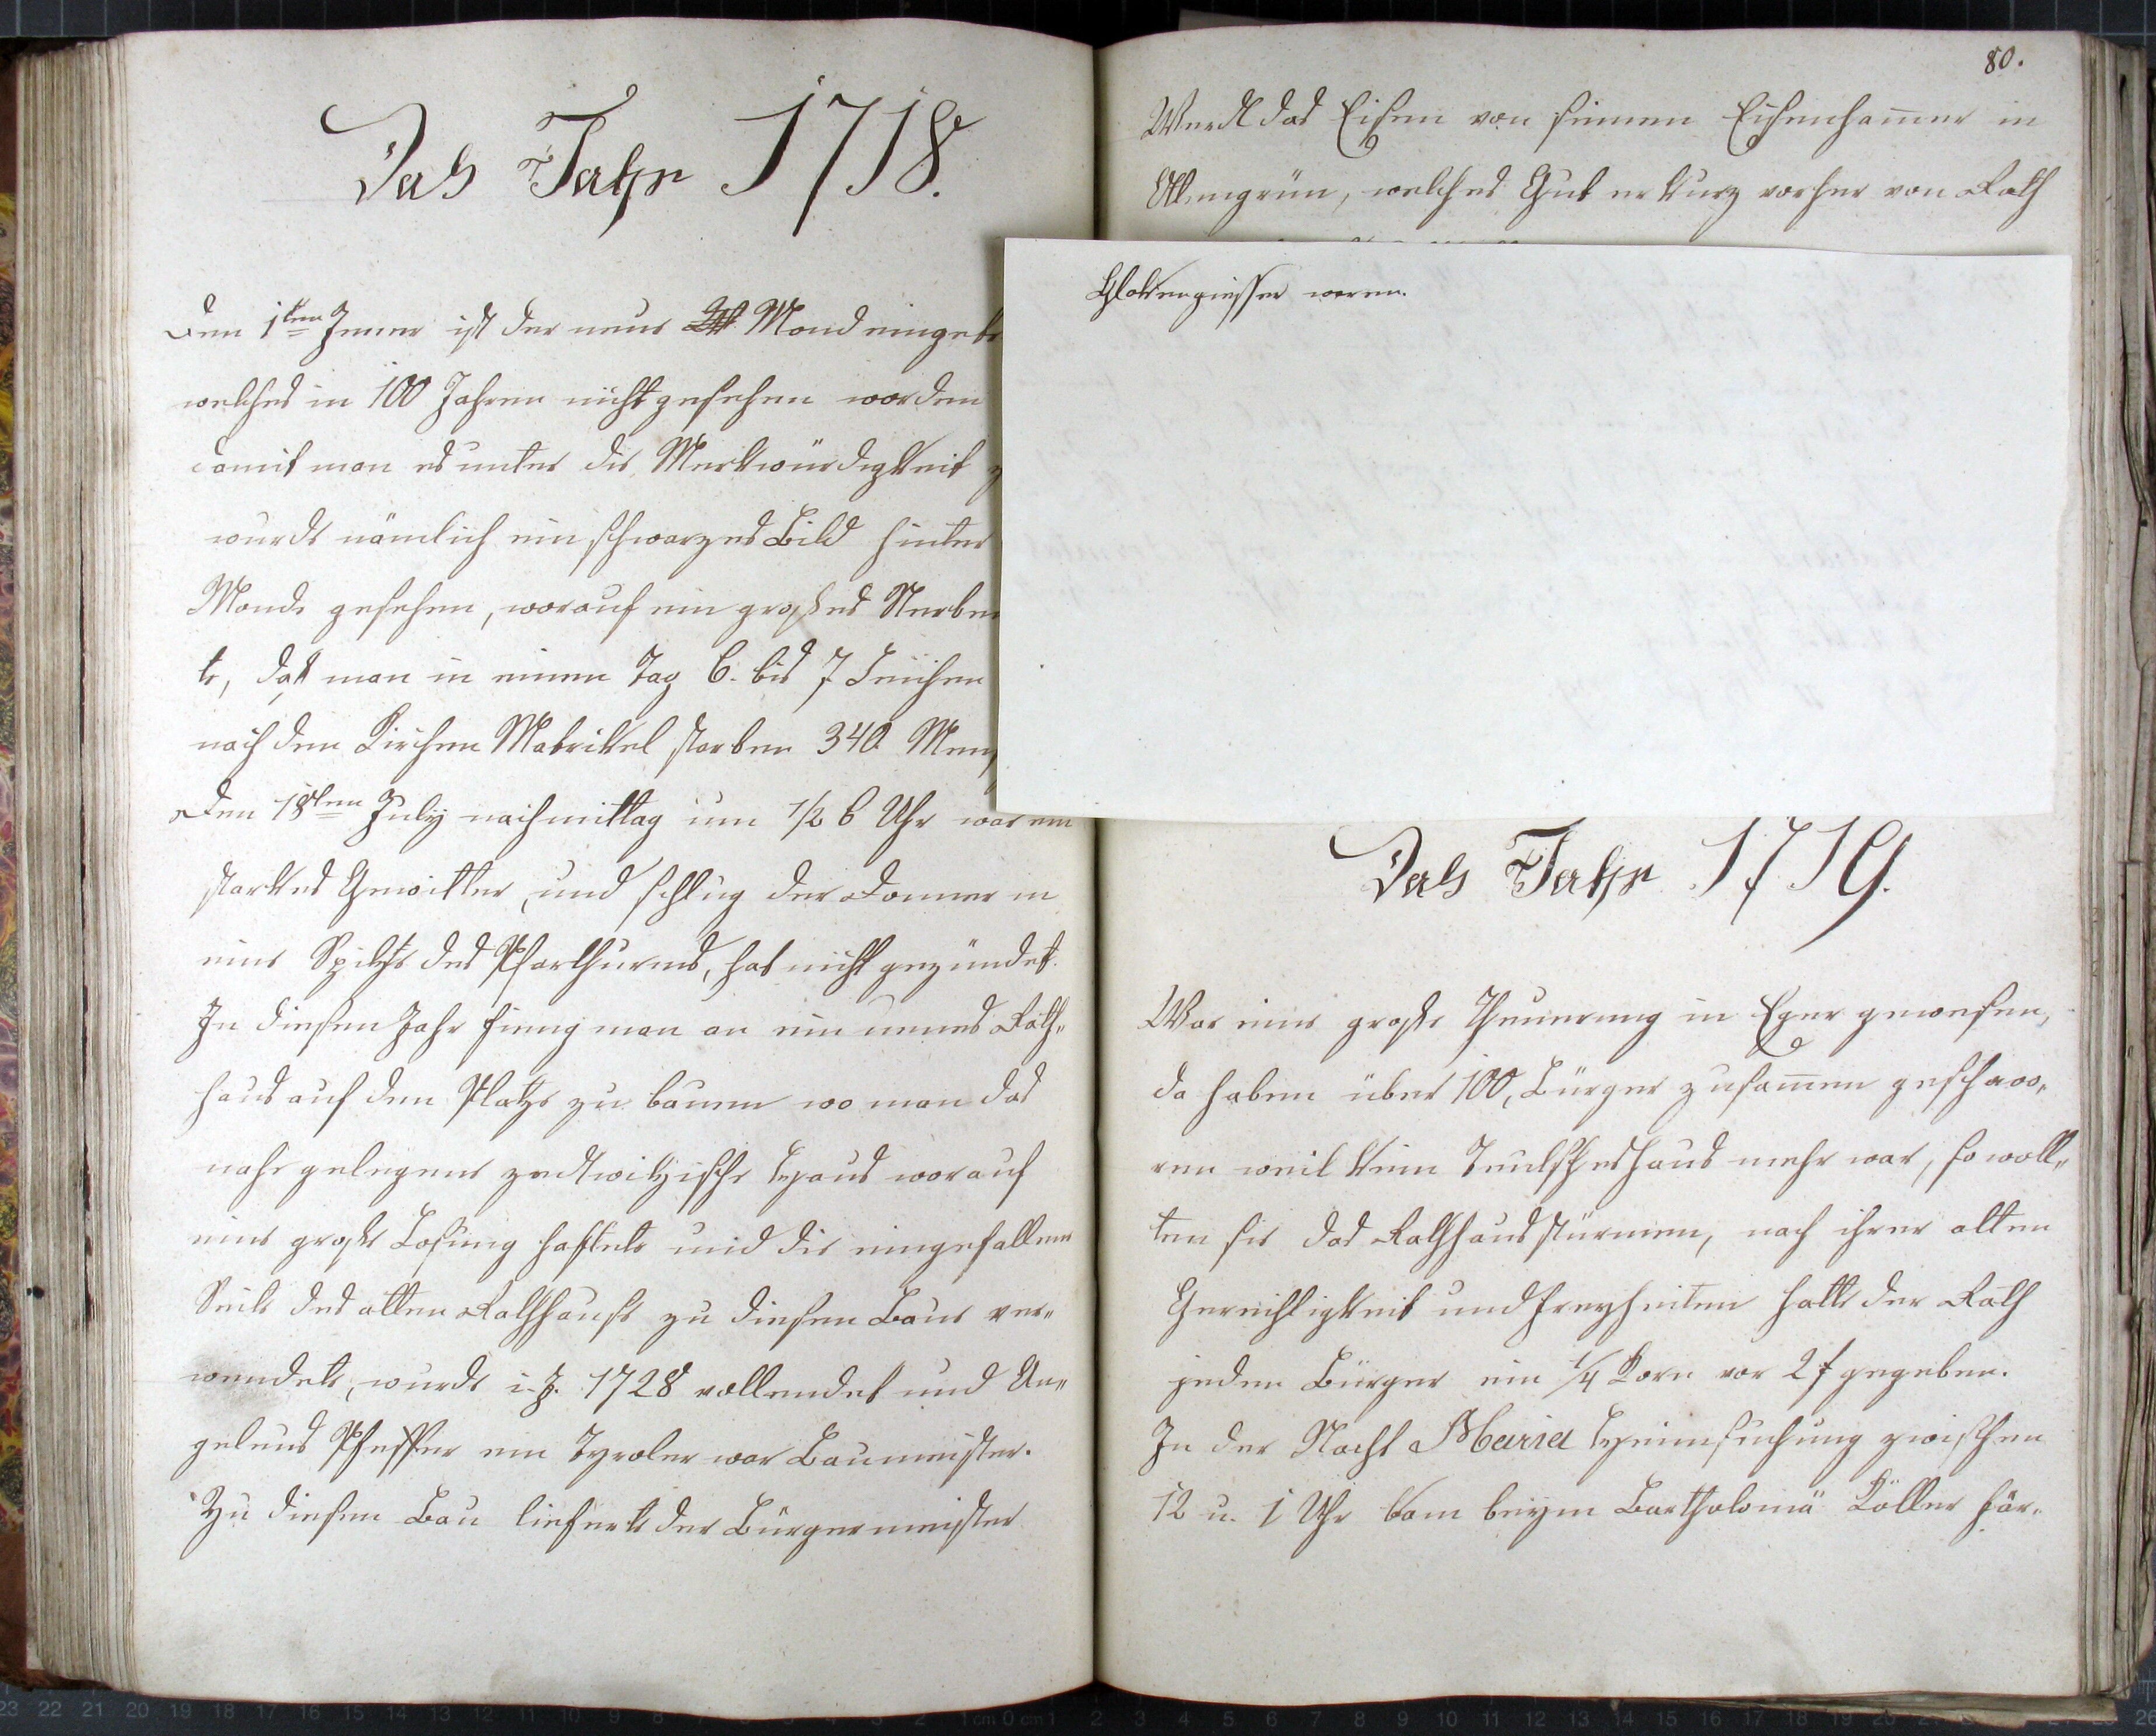 Das Jahr 1718.
Den 1ten Jener ist der neue Mond eingetr
welches in 100 Jahren nicht gesehen worden
damit man es unter die Merkwürdigkeit z
wurde nämlich ein schwarzes Bild hinter
Monde gesehen, worauf ein großes Sterben
te, daß man in einem Tag 6. bis 7 Leichen
nach den Kirchen Matrikel starben 340 Mens
Den 18ten July nachmittag um 1/2 6 Uhr war ein
starkes Gewitter, und schlug der Donner in
eine Spitze des Pfarthurms, hat nicht gezündet.
In diesen Jahr fieng man an ein neues Rath-
haus auf den Platze zu bauen wo man das
nahe gelegene zedtwitzische Haus worauf
eine große Losung haftete und die eingefallene
Seite des alten Rathhauses zu diesen Baue ver-
wendete, wurde i. J. 1728 vollendet und An-
gelus Pfeffer ein Tyroler war Baumeister.
Zu diesen Bau lieferte der Bürgermeister
80.
Werdl das Eisen von seinen Eisenhammer in
welches Gut er kurz vorher von Rath
Glokengiesser waren.
Das Jahr 1719.
War eine große Theuerung in Eger gewesen,
da haben über 100, Bürger zusammen geschwo-
ren weil kein Teutscheshaus mehr war, so woll-
ten sie das Rathhaus stürmen, nach ihrer alten
Gerechtigkeit und Freyheiten hatte der Rath
jeden Bürger ein 1/4 Korn vor 2 f gegeben.
In der Nacht Maria Heimsuchung zwischen
12 u. 1 Uhr kam beym Bartholomä Köller Fär-